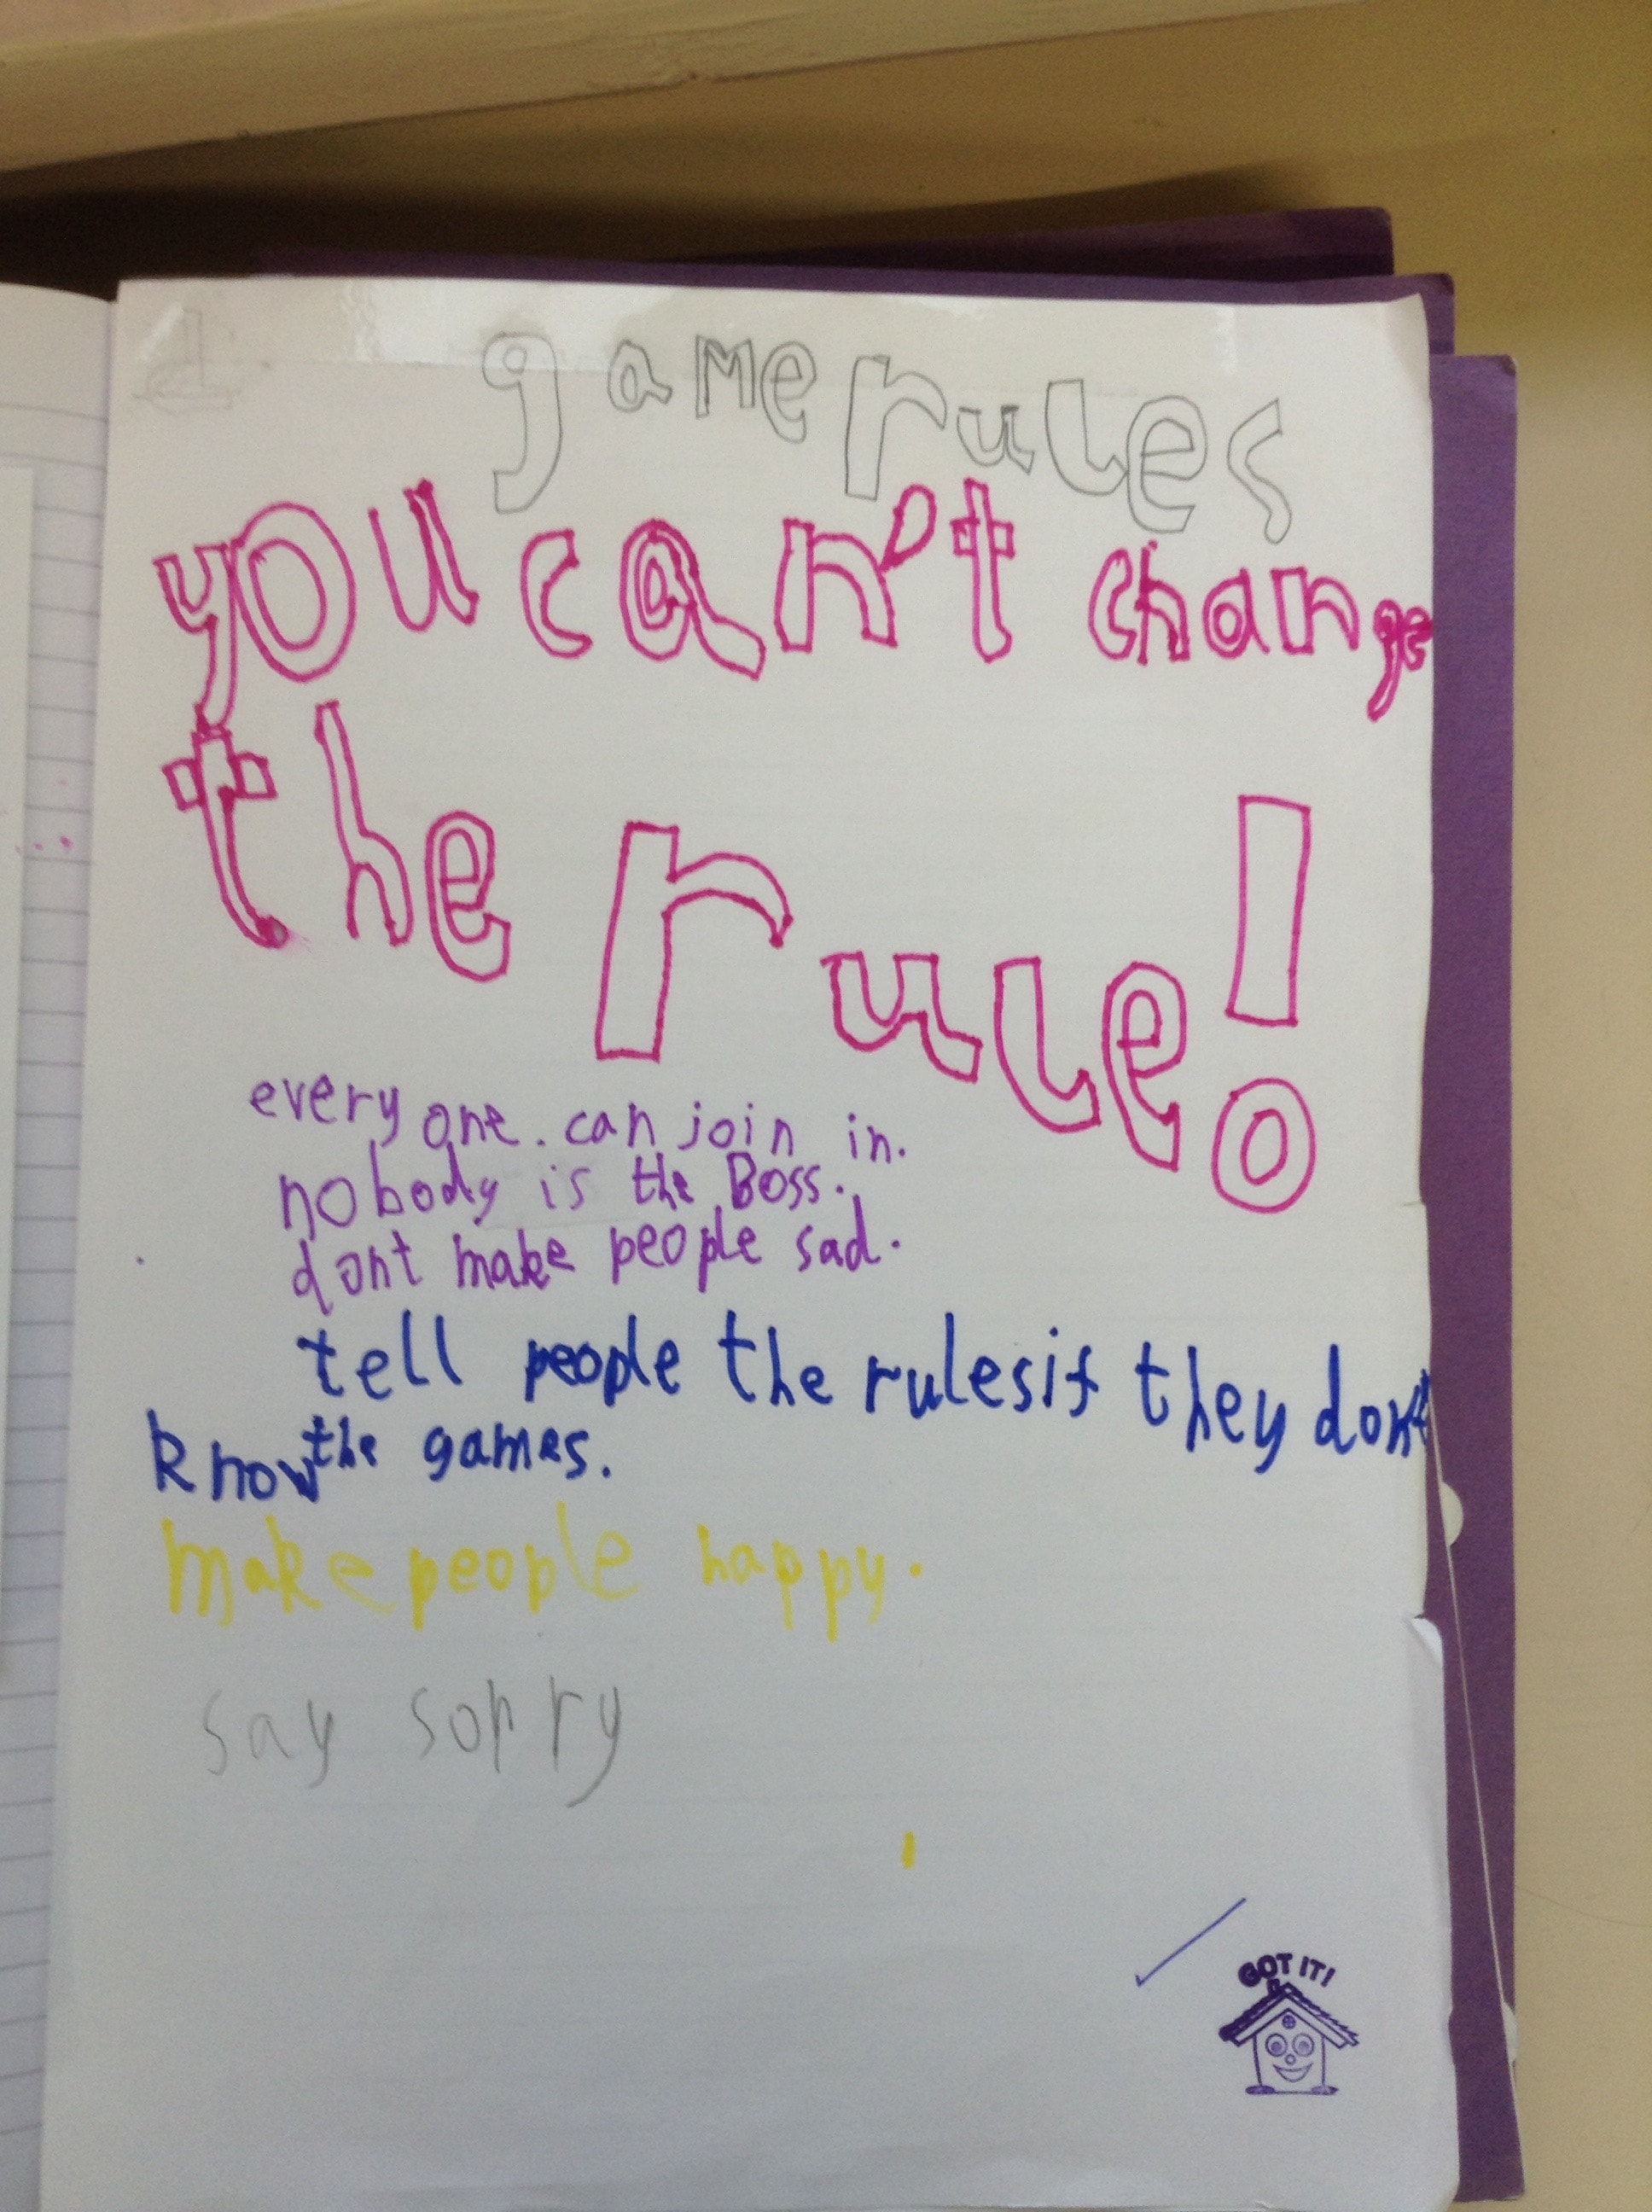 game rules
you can't change
the rule!
every one. can join in.
nobody is the Boss.
dont make people sad.
tell people the rules if they don't
know the games.
make people happy.
say sorry
GOT IT!